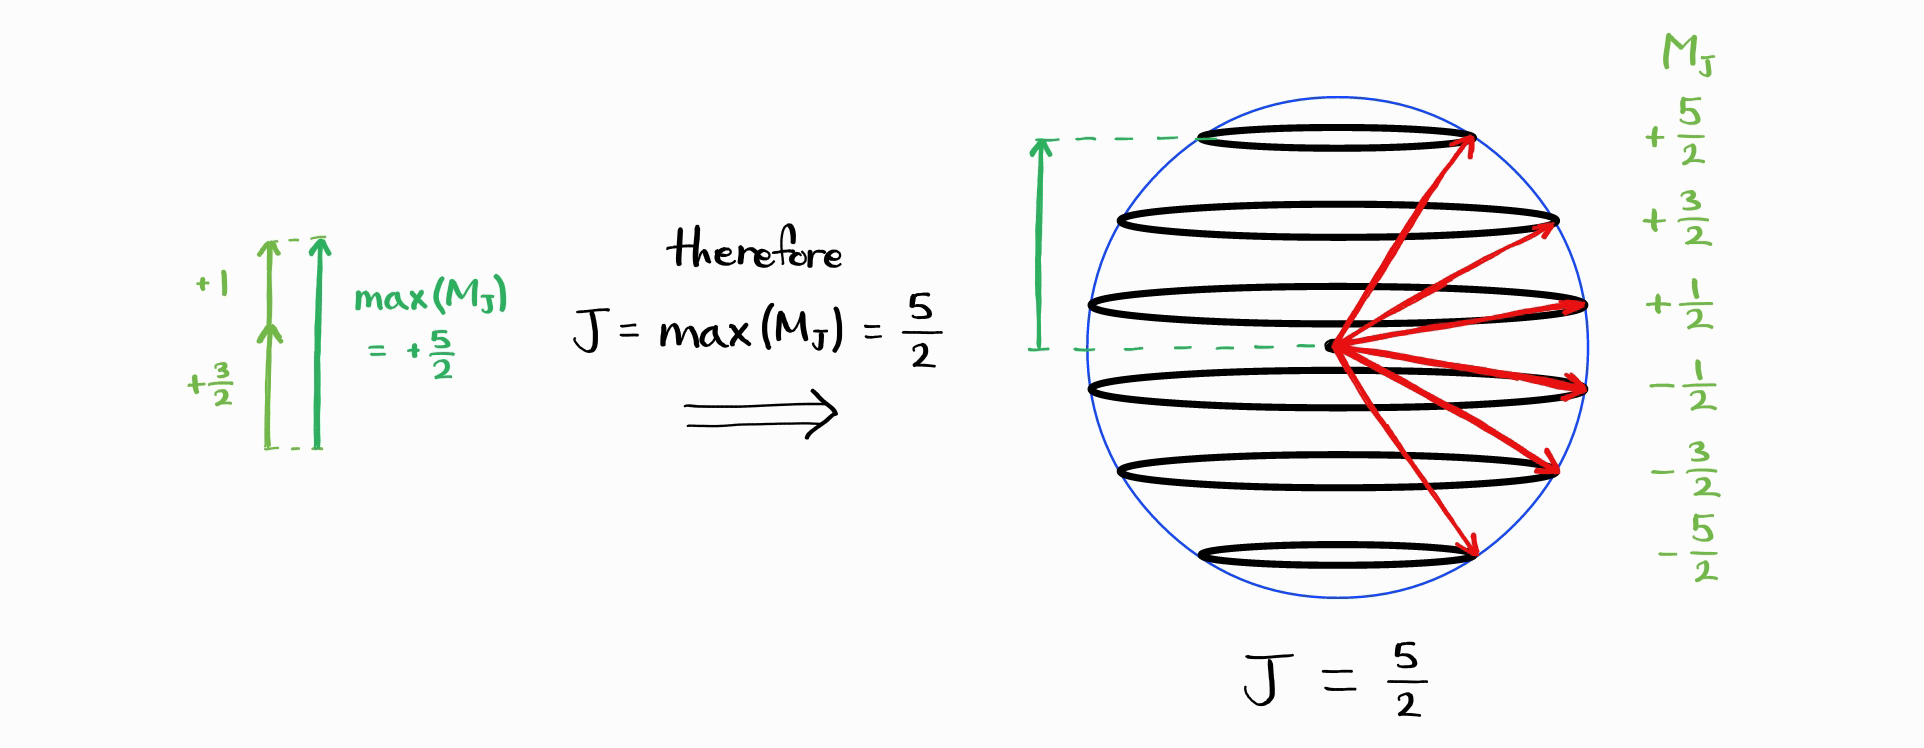 +1
+3/2
max(M_J)
= +5/2
therefore
J = max(M_J) = 5/2
M_J
+5/2
+3/2
+1/2
-1/2
-3/2
-5/2
J = 5/2